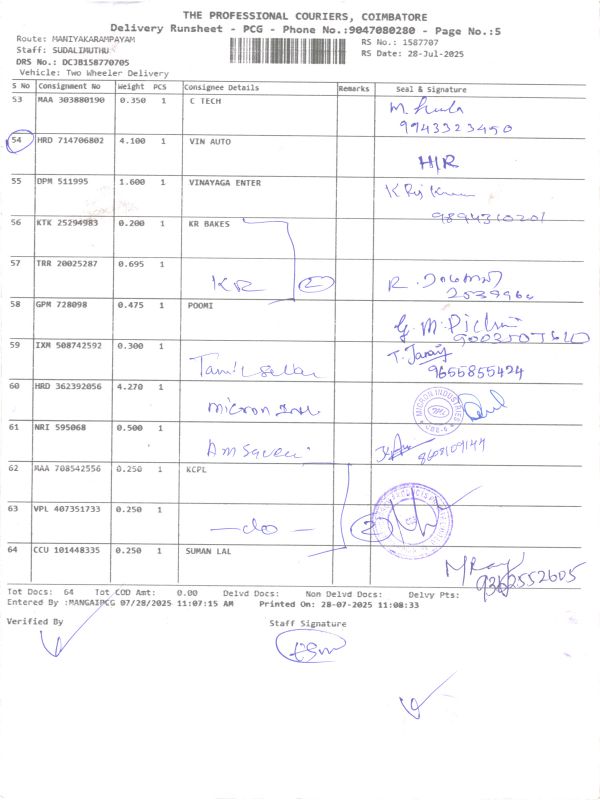 THE PROFESSIONAL COURIERS, COIMBATORE
Delivery Runsheet - PCG - Phone No.:9047080280 - Page No.:5
Route: MANIYAKARAMPAYAM
RS No.: 1587707
Staff: SUDALIMUTHU
RS Date: 28-Jul-2025
DRS No.: DCJB158770705
Vehicle: Two Wheeler Delivery
S No Consignment No Weight PCS Consignee Details Remarks Seal & Signature
53 MAA 303880190 0.350 1 C TECH
9943323450
54 HRD 714706802 4.100 1 VIN AUTO
H/R
55 DPM 511995 1.600 1 VINAYAGA ENTER
9894310201
56 KTK 25294983 0.200 1 KR BAKES
57 TRR 20025287 0.695 1
KR 2
58 GPM 728098 0.475 1 POOMI
G. M. Pichai
59 IXM 508742592 0.300 1
Tamil selvan
9655855424
60 HRD 362392056 4.270 1
Micron Ind.
MICRON INDUSTRIES
61 NRI 595068 0.500 1
62 MAA 708542556 0.250 1 KCPL
63 VPL 407351733 0.250 1
—do— 2
64 CCU 101448335 0.250 1 SUMAN LAL
9362552605
Tot Docs: 64 Tot COD Amt: 0.00 Delvd Docs: Non Delvd Docs: Delvy Pts:
Entered By :MANGAIPCG 07/28/2025 11:07:15 AM Printed On: 28-07-2025 11:08:33
Verified By Staff Signature